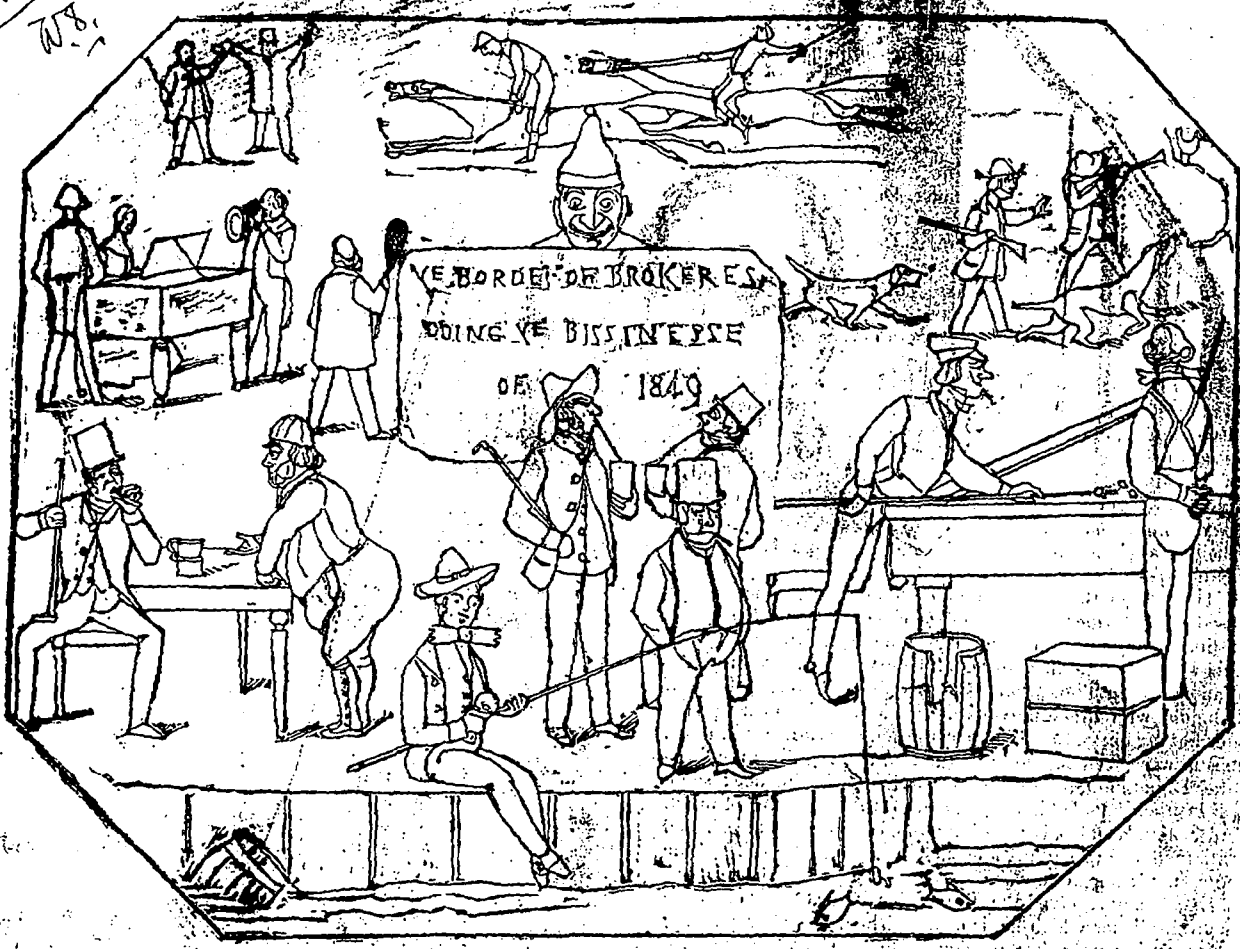 YE BORDE OF BROKERES
DOING YE BISSINESSE
OF 1849